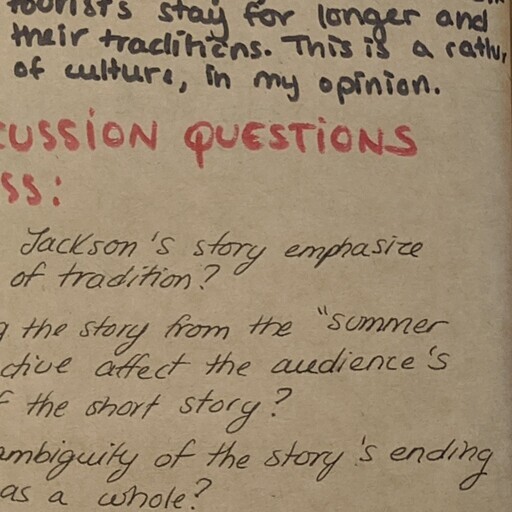 tourists stay for longer and
their traditions. This is a
of culture, in my opinion.
CUSSION QUESTIONS
SS:
Jackson's story emphasize
of tradition?
g the story from the "summer
ctive affect the audience's
f the short story?
ambiguity of the story's ending
as a whole?